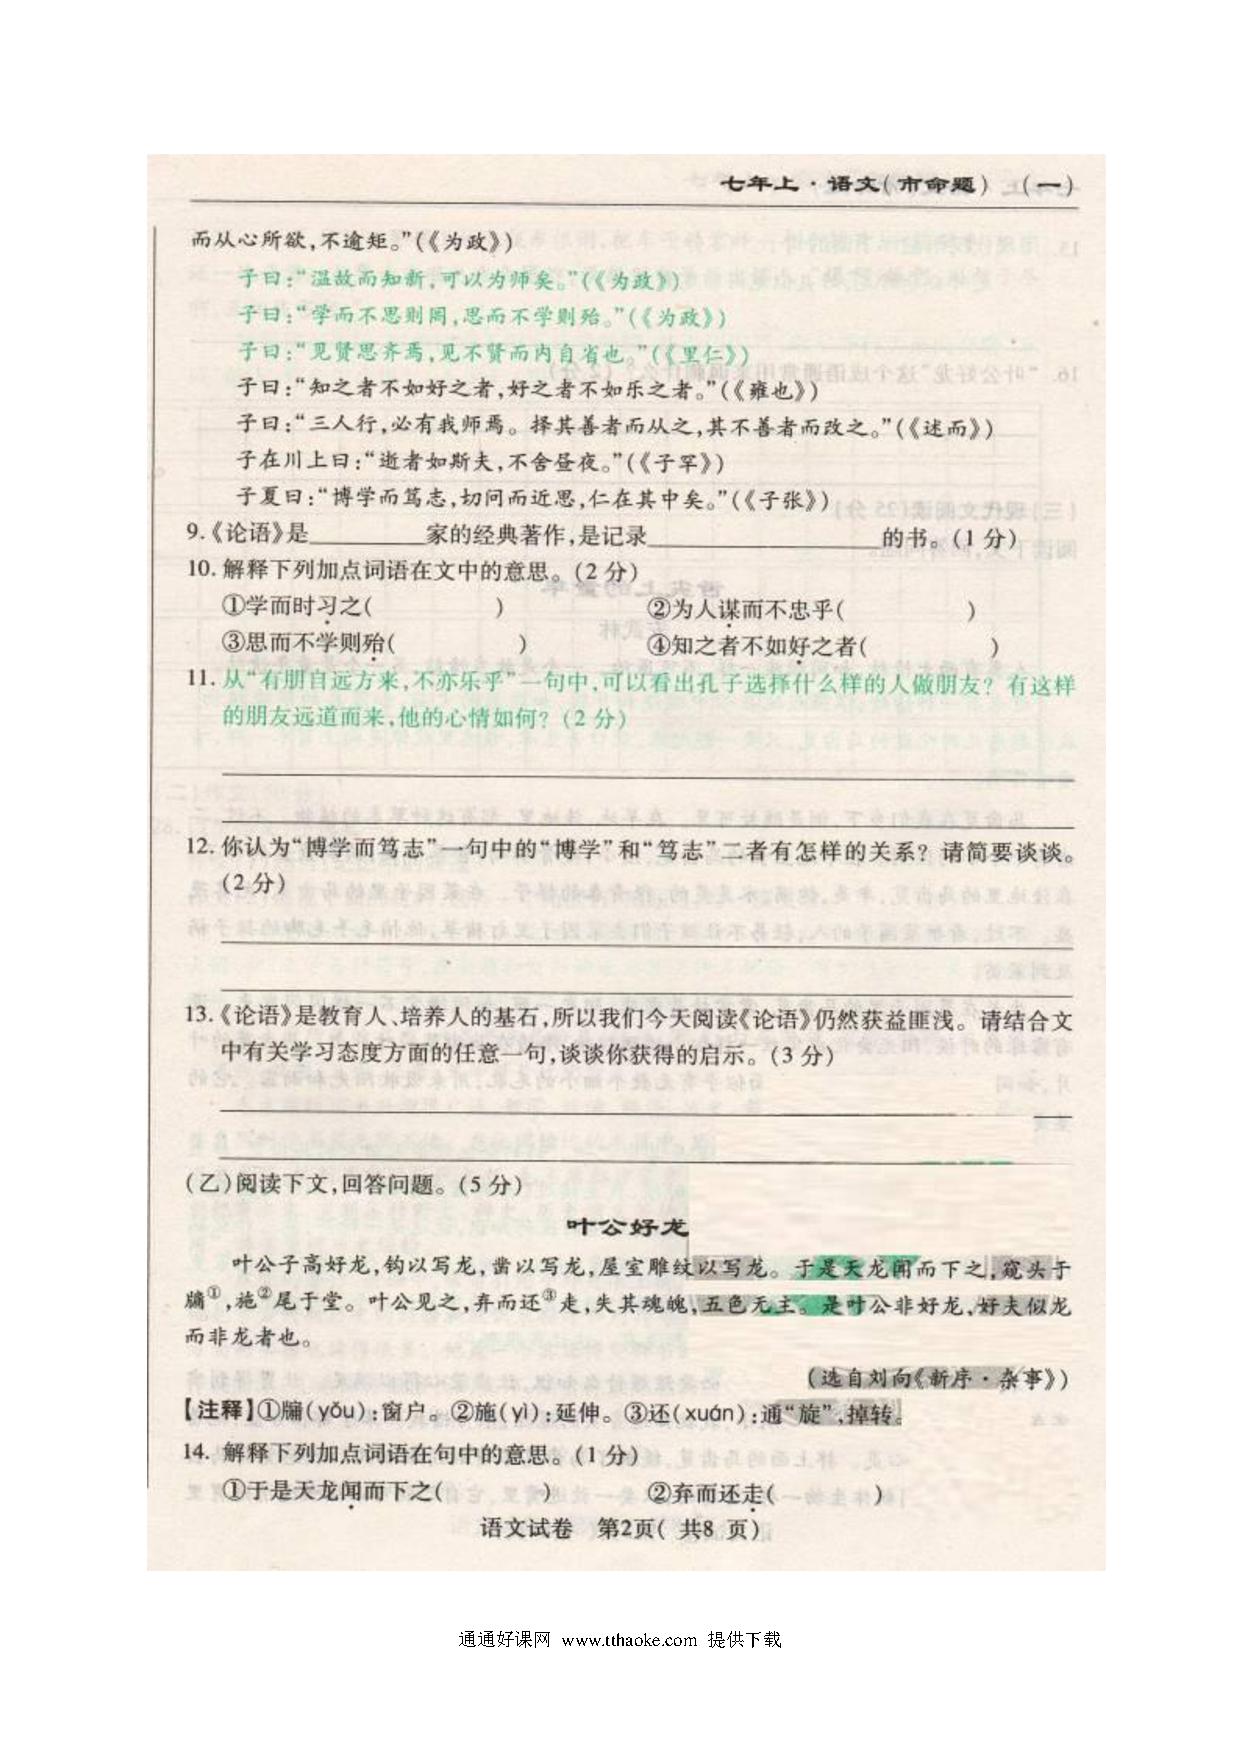 七年上·语文(市命题) (一)
而从心所欲,不逾矩。”(《为政》)
子曰:“温故而知新,可以为师矣。”(《为政》)
子曰:“学而不思则罔,思而不学则殆。”(《为政》)
子曰:“见贤思齐焉,见不贤而内自省也。”(《里仁》)
子曰:“知之者不如好之者,好之者不如乐之者。”(《雍也》)
子曰:“三人行,必有我师焉。择其善者而从之,其不善者而改之。”(《述而》)
子在川上曰:“逝者如斯夫,不舍昼夜。”(《子罕》)
子夏曰:“博学而笃志,切问而近思,仁在其中矣。”(《子张》)
9.《论语》是________家的经典著作,是记录________________的书。(1分)
10.解释下列加点词语在文中的意思。(2分)
①学而时习之( ) ②为人谋而不忠乎( )
③思而不学则殆( ) ④知之者不如好之者( )
11.从“有朋自远方来,不亦乐乎”一句中,可以看出孔子选择什么样的人做朋友?有这样
的朋友远道而来,他的心情如何?(2分)
12.你认为“博学而笃志”一句中的“博学”和“笃志”二者有怎样的关系?请简要谈谈。
(2分)
13.《论语》是教育人、培养人的基石,所以我们今天阅读《论语》仍然获益匪浅。请结合文
中有关学习态度方面的任意一句,谈谈你获得的启示。(3分)
(乙)阅读下文,回答问题。(5分)
叶公好龙
叶公子高好龙,钩以写龙,凿以写龙,屋室雕纹以写龙。于是天龙闻而下之,窥头于
牖①,施②尾于堂。叶公见之,弃而还③走,失其魂魄,五色无主。是叶公非好龙,好夫似龙
而非龙者也。
(选自刘向《新序·杂事》)
【注释】①牖(yǒu):窗户。②施(yì):延伸。③还(xuán):通“旋”,掉转。
14.解释下列加点词语在句中的意思。(1分)
①于是天龙闻而下之( ) ②弃而还走( )
语文试卷 第2页( 共8 页)
通通好课网 www.tthaoke.com 提供下载